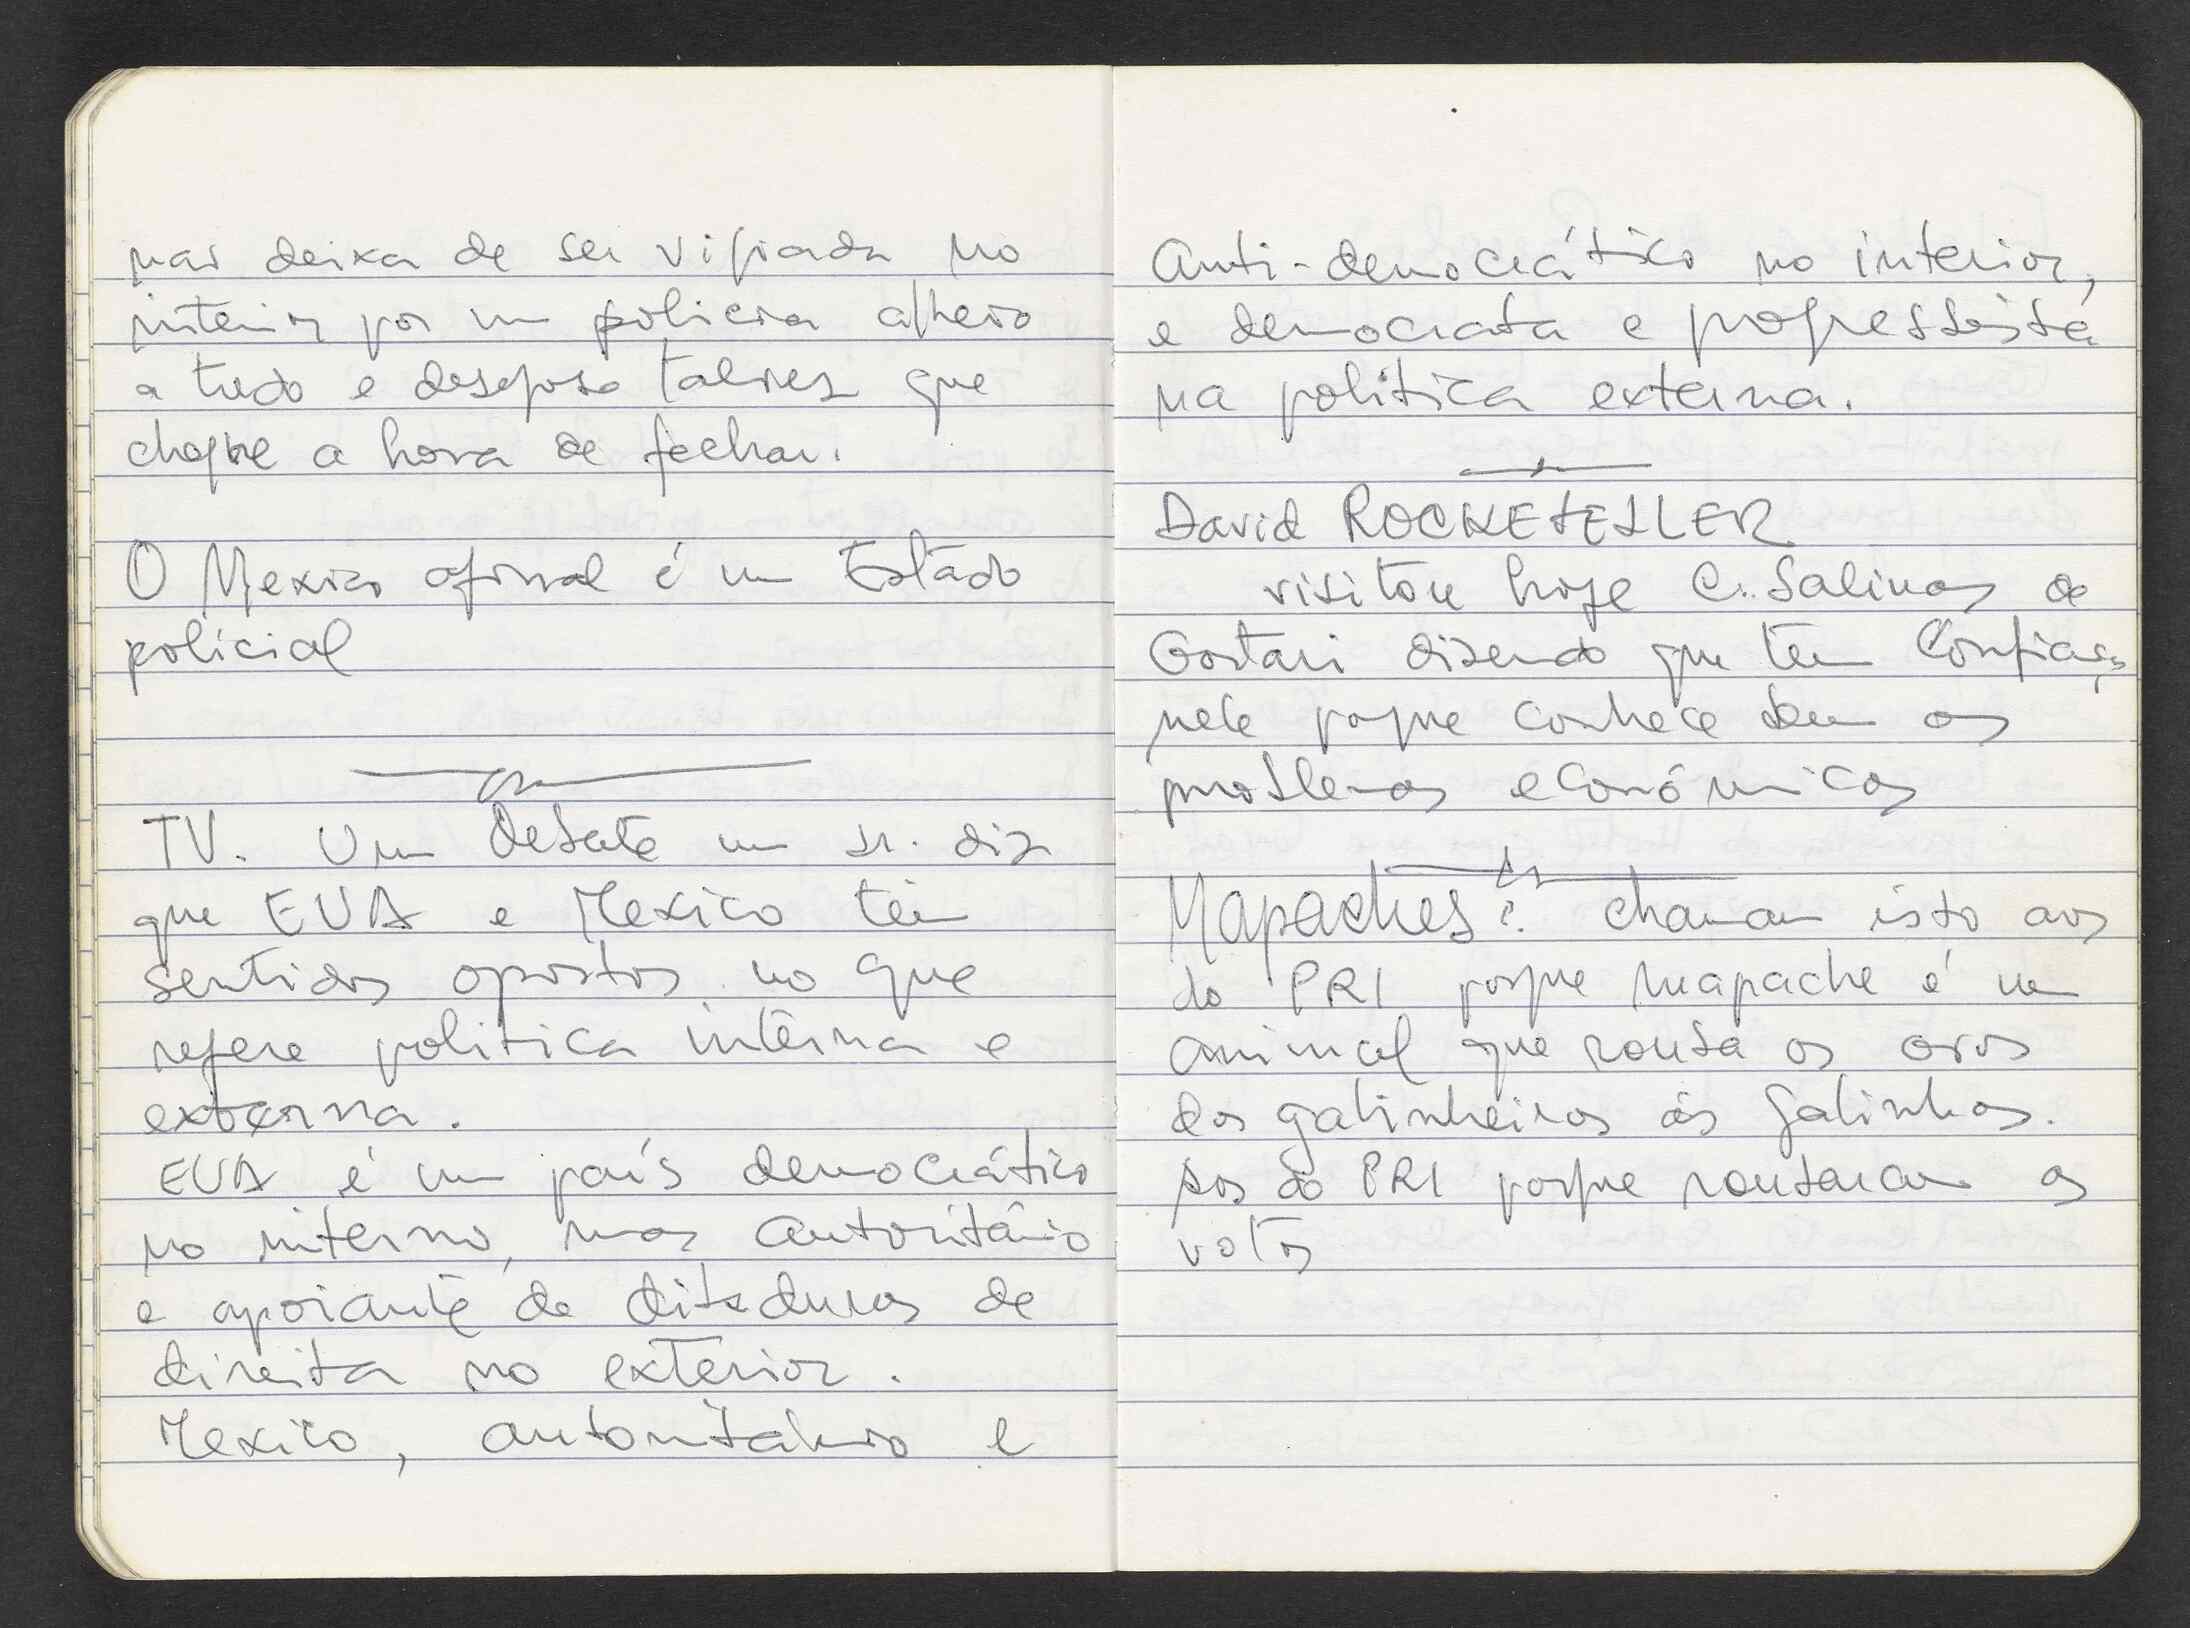 nao deixa de ser vigiada no
interior por um policia alheio
a tudo e desejoso talvez que
chegue a hora de fechar.
O Mexico afinal é um Estado
policial
TV. Um debate um sr. diz
que EUA e Mexico têm
sentidos opostos no que
refere politica interna e
externa.
EUA é um país democrático
no interno, mas autoritário
e apoiante de ditaduras de
direita no exterior.
Mexico, autoritário e
Anti-democrático no interior,
e democrata e progressista
na politica externa.
David ROCKEFELLER
visitou hoje C. Salinas de
Gortari dizendo que tem Confiança
nele porque conhece bem os
problemas económicos
Mapaches: chamam isto aos
do PRI porque mapache é um
animal que rouba os ovos
dos galinheiros às galinhas.
Aos do PRI porque roubaram os
votos